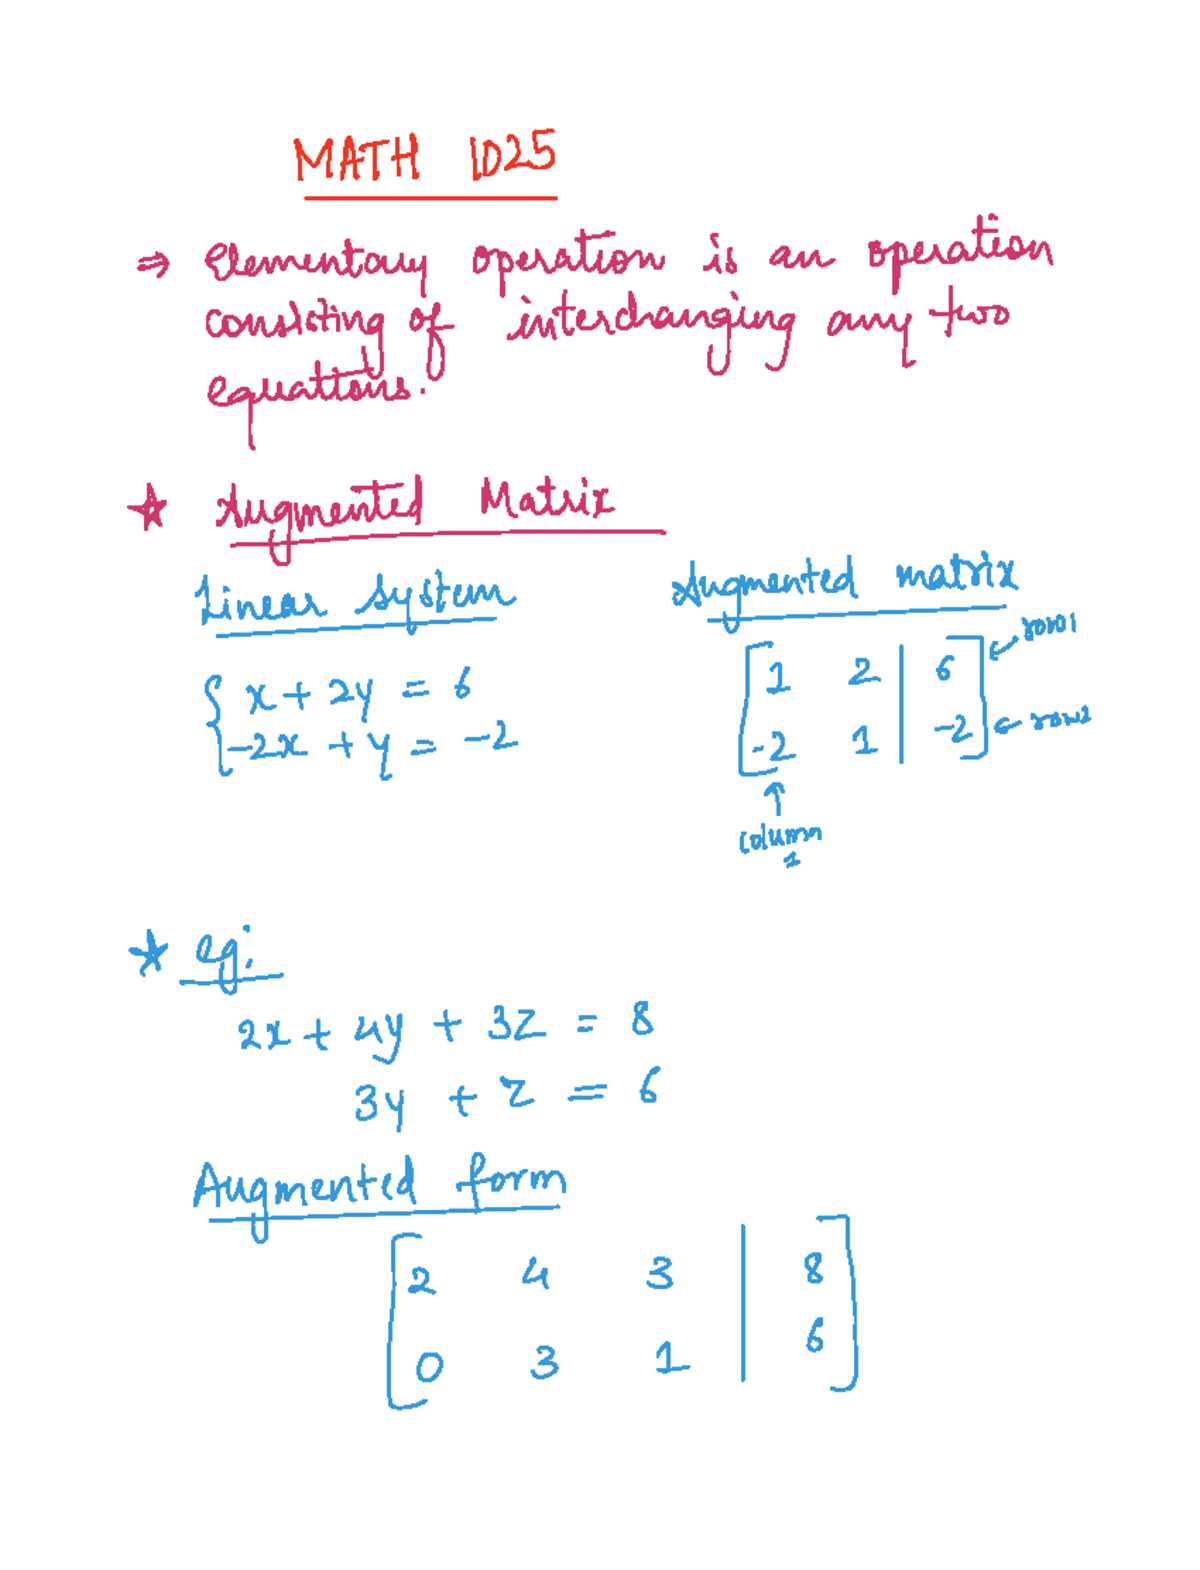 MATH 1025
⇒ Elementary operation is an operation
consisting of interchanging any two
equations.
★ Augmented Matrix
Linear system
Augmented matrix
{ x + 2y = 6
-2x + y = -2
[ 1 2 | 6 ] ← row1
[ -2 1 | -2 ] ← row2
↑
column
1
★ eg:
2x + 4y + 3z = 8
3y + z = 6
Augmented form
[ 2 4 3 | 8 ]
[ 0 3 1 | 6 ]